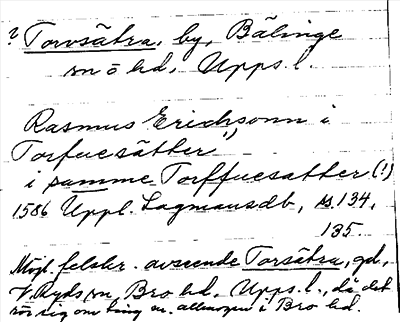 ? Torvsätra, by, Bälinge
sn o hd, Upps.l.
Rasmus Erichsonn i
Torfuesätter,
i samme Torffuesatter (!)
1586 Uppl. Lagmansdb, s. 134,
135.
Möjl. felskr. avseende Torsätra, gd,
V. Ryds sn Bro hd, Upps.l., då det
rör sig om ting m. allmogen i Bro hd.